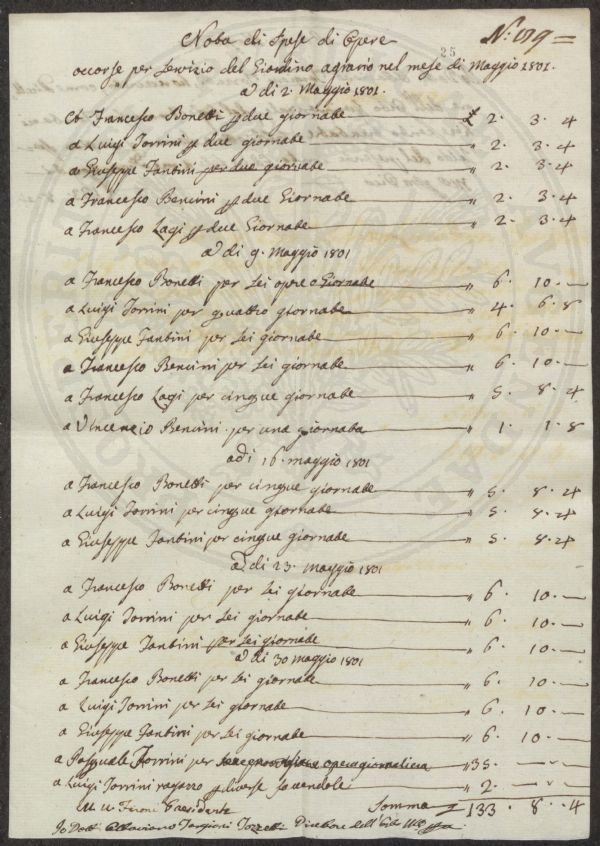 Nota di Spese di Opere
25
N: 119 =
occorse per servizio del Giardino agrario nel mese di Maggio 1801.
A di 2. Maggio 1801.
A Francesco Bonetti p due giornate £ 2. 3. 4
a Luigi Torrini p due giornate " 2. 3. 4
a Giuseppe Fantini per due giornate " 2. 3. 4
a Francesco Bencini p due Giornate " 2. 3. 4
a Francesco Lagi p due Giornate " 2. 3. 4
A di 9. Maggio 1801
a Francesco Bonetti per sei opere o Giornate " 6. 10. —
a Luigi Torrini per quattro giornate " 4. 6. 8
a Giuseppe Fantini per sei giornate " 6. 10. —
a Francesco Bencini per sei giornate " 6. 10. —
a Francesco Lagi per cinque giornate " 5. 8. 4
a Vincenzio Bencini per una giornata " 1. 1. 8
adi 16. maggio 1801
a Francesco Bonetti per cinque giornate " 5. 8. 4
a Luigi Torrini per cinque giornate " 5. 8. 4
a Giuseppe Fantini per cinque giornate " 5. 8. 4
A di 23. maggio 1801
a Francesco Bonetti per sei giornate " 6. 10. —
a Luigi Torrini per sei giornate " 6. 10. —
a Giuseppe Fantini per sei giornate " 6. 10. —
A di 30 maggio 1801
a Francesco Bonetti per sei giornate " 6. 10. —
a Luigi Torrini per sei giornate " 6. 10. —
a Giuseppe Fantini per sei giornate " 6. 10. —
a Pasquale Torrini per " 35. — —
a Luigi Torrini ragazzo p diverse faccendole " 2. — —
Somma £ 133. 8. 4
Presidente
Io Dott. Ottaviano Targioni Tozzetti Direttore dell'